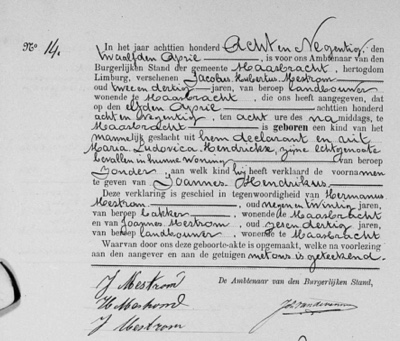 No 14.
In het jaar achttien honderd Acht en Negentig, den
twaalfden April, is voor ons Ambtenaar van den
Burgerlijken Stand der gemeente Maasbracht, hertogdom
Limburg, verschenen Jacobus Hubertus Mestrom
oud twee en dertig jaren, van beroep landbouwer
wonende te Maasbracht, die ons heeft aangegeven, dat
op den elfden April achttienhonderd
acht en negentig, ten acht ure des na middags, te
Maasbracht is geboren een kind van het
mannelijk geslacht uit hem declarant en uit
Maria Ludovica Hendrickx, zijne echtgenoote
bevallen in hunne woning van beroep
Zonder, aan welk kind hij heeft verklaard de voornamen
te geven van Joannes Hendrikus.
Deze verklaring is geschied in tegenwoordigheid van Hermanus
Mestrom, oud negen en twintig jaren,
van beroep bakker, wonende te Maasbracht
en van Joannes Mestrom, oud zeven en dertig jaren,
van beroep landbouwer, wonende te Maasbracht
Waarvan door ons deze geboorte-akte is opgemaakt, welke na voorlezing
aan den aangever en aan de getuigen met ons is geteekend.
J Mestrom
De Ambtenaar van den Burgerlijken Stand,
H Mestrom
J Mestrom